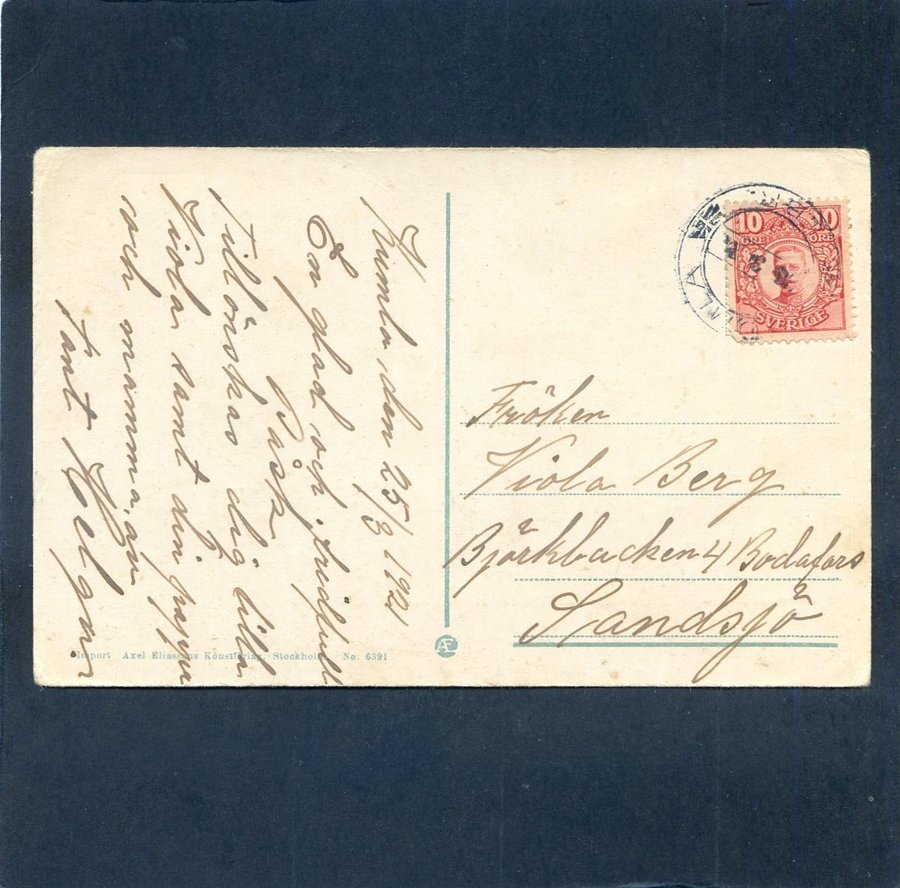 Kumla den 25/3 1921
En glad och fridfull
Påsk
Tillönskas dig lilla
Viola samt din pappa
och mamma, av
tant Helga.
Import Axel Eliassons Könstförlag, Stockholm No. 6391
Æ
10 10
ÖRE ÖRE
SVERIGE
Fröken
Viola Berg
Björkbacken 4 Bodafors
Sandsjö